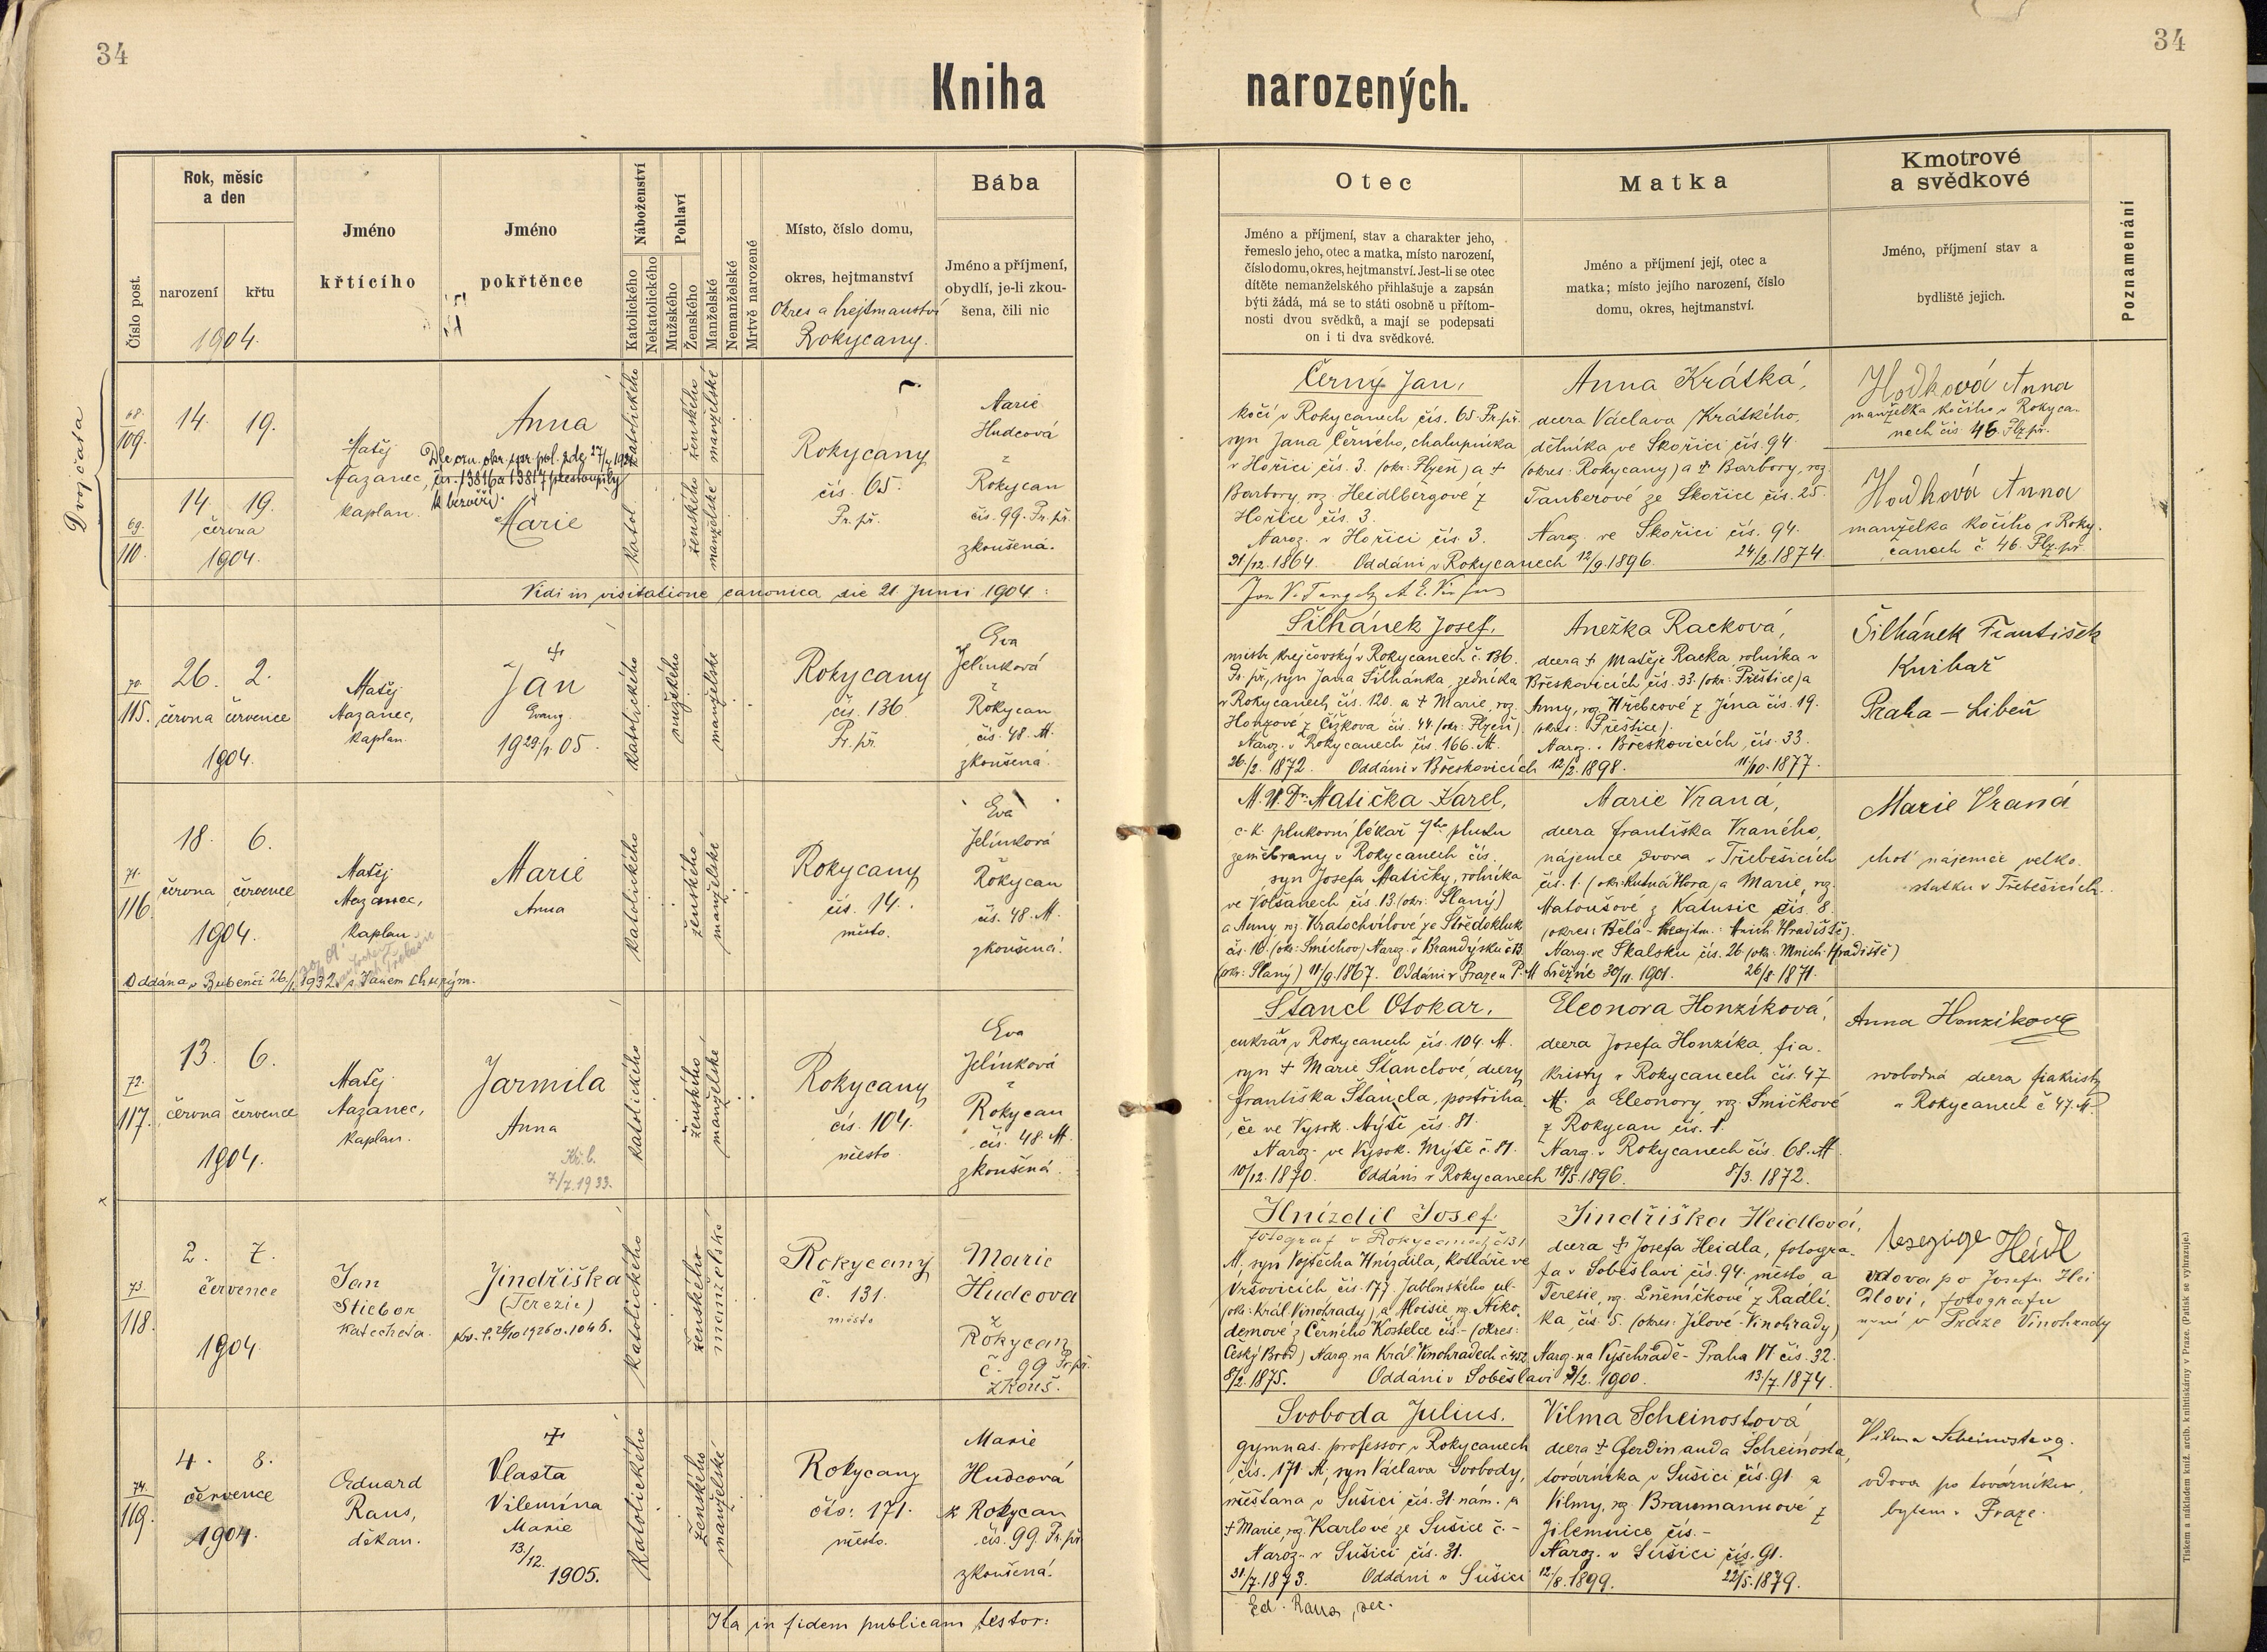 34
34
Kniha narozených.
Číslo post.
Rok, měsíc
a den
narození
křtu
1904.
Jméno
křtícího
Jméno
pokřtěnce
Náboženství
Katolického
Nekatolického
Pohlaví
Mužského
Ženského
Manželské
Nemanželské
Mrtvě narozené
Místo, číslo domu,
okres, hejtmanství
Okres a hejtmanství
Rokycany.
Bába
Jméno a příjmení,
obydlí, je-li zkou-
šena, čili nic
Otec
Jméno a příjmení, stav a charakter jeho,
řemeslo jeho, otec a matka, místo narození,
číslo domu, okres, hejtmanství. Jest-li se otec
dítěte nemanželského přihlašuje a zapsán
býti žádá, má se to státi osobně u přítom-
nosti dvou svědků, a mají se podepsati
on i ti dva svědkové.
Matka
Jméno a příjmení její, otec a
matka; místo jejího narození, číslo
domu, okres, hejtmanství.
Kmotrové
a svědkové
Jméno, příjmení stav a
bydliště jejich.
Poznamenání
Dvojčata
68.
109.
14. 19.
69.
110.
14. 19.
června
1904.
Matěj
Nazanec,
kaplan.
Anna
k bezvěří.
Marie
katolického
ženského
manželské
katol.
ženského
manželské
Rokycany
čís. 65.
Pr. př.
Marie
Hudcová
z
Rokycan
čís. 99. Pr. př.
zkoušená.
Černý Jan,
kočí v Rokycanech čís. 65 Pr. př.
syn Jana Černého, chalupníka
v Hořici čís. 3. (okr: Plzeň) a †
Barbory, roz. Heidlbergové z
Hořice čís. 3.
Naroz. v Hořici čís. 3.
31/12. 1864. Oddáni v Rokycanech 12/9. 1896.
Anna Krátká,
dcera Václava Krátkého,
dělníka ve Skořici čís. 94
(okres: Rokycany) a † Barbory, roz.
Tauberové ze Skořice čís. 25.
Naroz. ve Skořici čís. 94.
24/2. 1874.
Hodková Anna
manželka kočího v Rokyca-
nech čís 46. Plz. př.
Hodková Anna
manželka kočího v Roky-
canech č. 46. Plz. př.
Vidi in visitatione canonica die 21. Junii 1904:
70.
115.
26. 2.
června července
1904.
Matěj
Nazanec,
kaplan.
†
Jan
Evang.
1929/1. 05.
katolického
mužského
manželské
Rokycany
čís. 136
Pr. př.
Eva
Jelínková
z
Rokycan
čís. 48. M.
zkoušená.
Šilhánek Josef,
mistr krejčovský v Rokycanech č. 136.
Pr. př., syn Jana Šilhánka, zedníka
v Rokycanech čís. 120. a † Marie, roz.
Honzové z Čižkova čís. 44. (okr: Plzeň)
Naroz. v Rokycanech čís. 166. M.
26/2. 1872. Oddáni v Břeskovicích 12/2. 1898.
Anežka Racková,
dcera † Matěje Racka, rolníka v
Břeskovicích čís. 33. (okr: Přeštice) a
Anny, roz. Hřebcové z Jína čís. 19.
(okres: Přeštice).
Naroz. v Břeskovicích čís. 33.
11/10. 1877.
Šilhánek František
Knihař
Praha – Libeň
71.
116.
18. 6.
června července
1904.
Matěj
Nazanec,
kaplan.
Marie
Anna
katolického
ženského
manželské
Rokycany
čís. 14.
město.
Eva
Jelínková
Rokycan
čís. 48. M.
zkoušená.
Oddána v Bubenči 26/1. 1932 s Janem
M. U. Dr. Matička Karel,
c. k. plukovní lékař 7ho pluku
zeměbrany v Rokycanech čís.
syn Josefa Matičky, rolníka
ve Volšanech čís. 13. (okr: Slaný)
a Anny roz. Kratochvílové ze Středokluk
čís. 16. (okr: Smíchov) Naroz. v Brandýsku č. 13.
(okr: Slaný) 11/9. 1867. Oddáni v Praze u P. M. Sněžné 30/11. 1901.
Marie Vraná,
dcera Františka Vraného,
nájemce dvora v Třebešicích
čís. 1. (okr: Kutná Hora) a Marie, roz.
Matoušové z Katusic čís. 8.
(okres: Bělá – hejtm.: Mnich. Hradiště).
Naroz. ve Skalsku čís. 26. (okr: Mnich. Hradiště)
26/8. 1871.
Marie Vraná
choť nájemce velko-
statku v Třebešicích.
72.
117.
13. 6.
června července
1904.
Matěj
Nazanec,
kaplan.
Jarmila
Anna
Kř. l.
7/7. 1933.
katolického
ženského
manželské
Rokycany
čís. 104.
město
Eva
Jelínková
z
Rokycan
čís. 48. M.
zkoušená
Štancl Otokar,
cukrář v Rokycanech čís. 104. M.
syn † Marie Štanclové, dcery
Františka Štancla, postřiha-
če ve Vysok. Mýtě čís. 81.
Naroz. ve Vysok. Mýtě č. 81.
10/12. 1870. Oddáni v Rokycanech 18/5. 1896.
Eleonora Honzíková,
dcera Josefa Honzíka, fia-
kristy v Rokycanech čís. 47
M. a Eleonory, roz. Smíčkové
z Rokycan čís. 1.
Naroz. v Rokycanech čís. 68. M.
8/3. 1872.
Anna Honzíkova
svobodná dcera fiakristy
v Rokycanech č 47. M.
73.
118.
2. 7.
července
1904
Jan
Stiebor
katecheta.
Jindřiška
(Terezie)
katolického
ženského
manželské
Rokycany
č. 131.
město
Marie
Hudcova
z
Rokycan
č. 99 Pr. př.
zkouš.
Hnízdil Josef,
fotograf v Rokycanech č. 131
M. syn Vojtěcha Hnízdila, kotláře ve
Vršovicích čís. 177. Jablonského ul.
(okr: Král. Vinohrady) a Aloisie, roz. Niko-
demové z Černého Kostelce čís – (okres:
Český Brod) Naroz. na Král. Vinohradech č. 452
8/2. 1875. Oddáni v Soběslavi 3/2. 1900.
Jindřiška Heidlová,
dcera † Josefa Heidla, fotogra-
fa v Soběslavi čís. 94. město, a
Teresie, roz. Sněníčkové z Radlí-
ka, čís. 5. (okres: Jílové – Vinohrady)
Naroz. na Vyšehradě – Praha VI čís. 32.
13/7. 1874.
Heidl
vdova po Josefu Hei
dlovi, fotografu
nyní v Praze Vinohrady
74.
119.
4. 8.
července
1904.
Eduard
Raus,
děkan.
†
Vlasta
Vilemína
Marie
13/12.
1905.
Katolického
ženského
manželské
Rokycany
čís: 171.
město.
Marie
Hudcová
z Rokycan
čís. 99. Pr. př.
zkoušená.
Svoboda Julius,
gymnas. professor v Rokycanech
čís. 171 M, syn Václava Svobody,
měšťana v Sušici čís. 31. nám. a
† Marie, roz. Karlové ze Sušice č. –
Naroz. v Sušici čís. 31.
31/7. 1873. Oddáni v Sušici 12/8. 1899.
Vilma Scheinostová
dcera † Ferdinanda Scheinosta,
továrníka v Sušici čís. 91. a
Vilmy, roz. Braumannové z
Jilemnice čís. –
Naroz. v Sušici čís. 91.
22/5. 1879.
Vilma Scheinostova.
vdova po továrníku,
bytem v Praze.
Ita in fidem publicam testor:
Ed. Raus, dec.
Tiskem a nákladem kníž. arcib. knihtiskárny v Praze. (Patisk se vyhrazuje.)